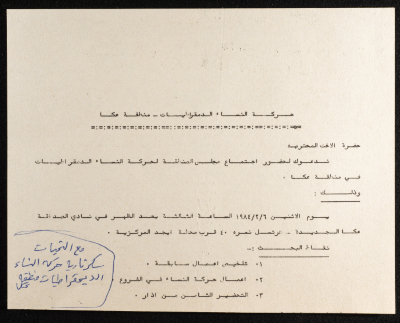 حركة النساء الدمقراطيات - منطقة عكا
حضرة الاخت المحترمة
ندعوك لحضور اجتماع مجلس المنطقة لحركة النساء الدمقراطيات
في منطقة عكا .
وذلك :
يوم الاثنين ١٩٨٤/٢/٦ الساعة الثالثة بعد الظهر في نادي الصداقة
عكا الجديدة - ترمبلدور نمره ٤٠ قرب محطة ايجد المركزية .
نقاط البحث :
١٠ تلخيص اعمال سابقة .
٢٠ اعمال حركة النساء في الفروع
٣٠ التحضير للثامن من اذار .
مع التحيات
سكرتارية حركة النساء
الديمقراطيات منطقة
عكا